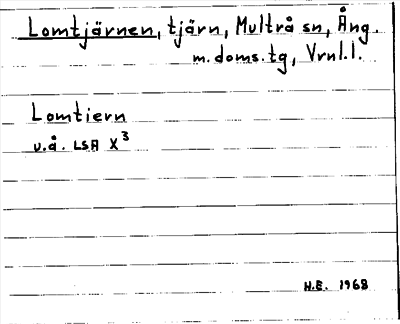 Lomtjärnen, tjärn, Multrå sn, Ång.
m. doms. tg, Vrnl. l.
Lomtiern
u.å. LSA X³
H.E. 1968